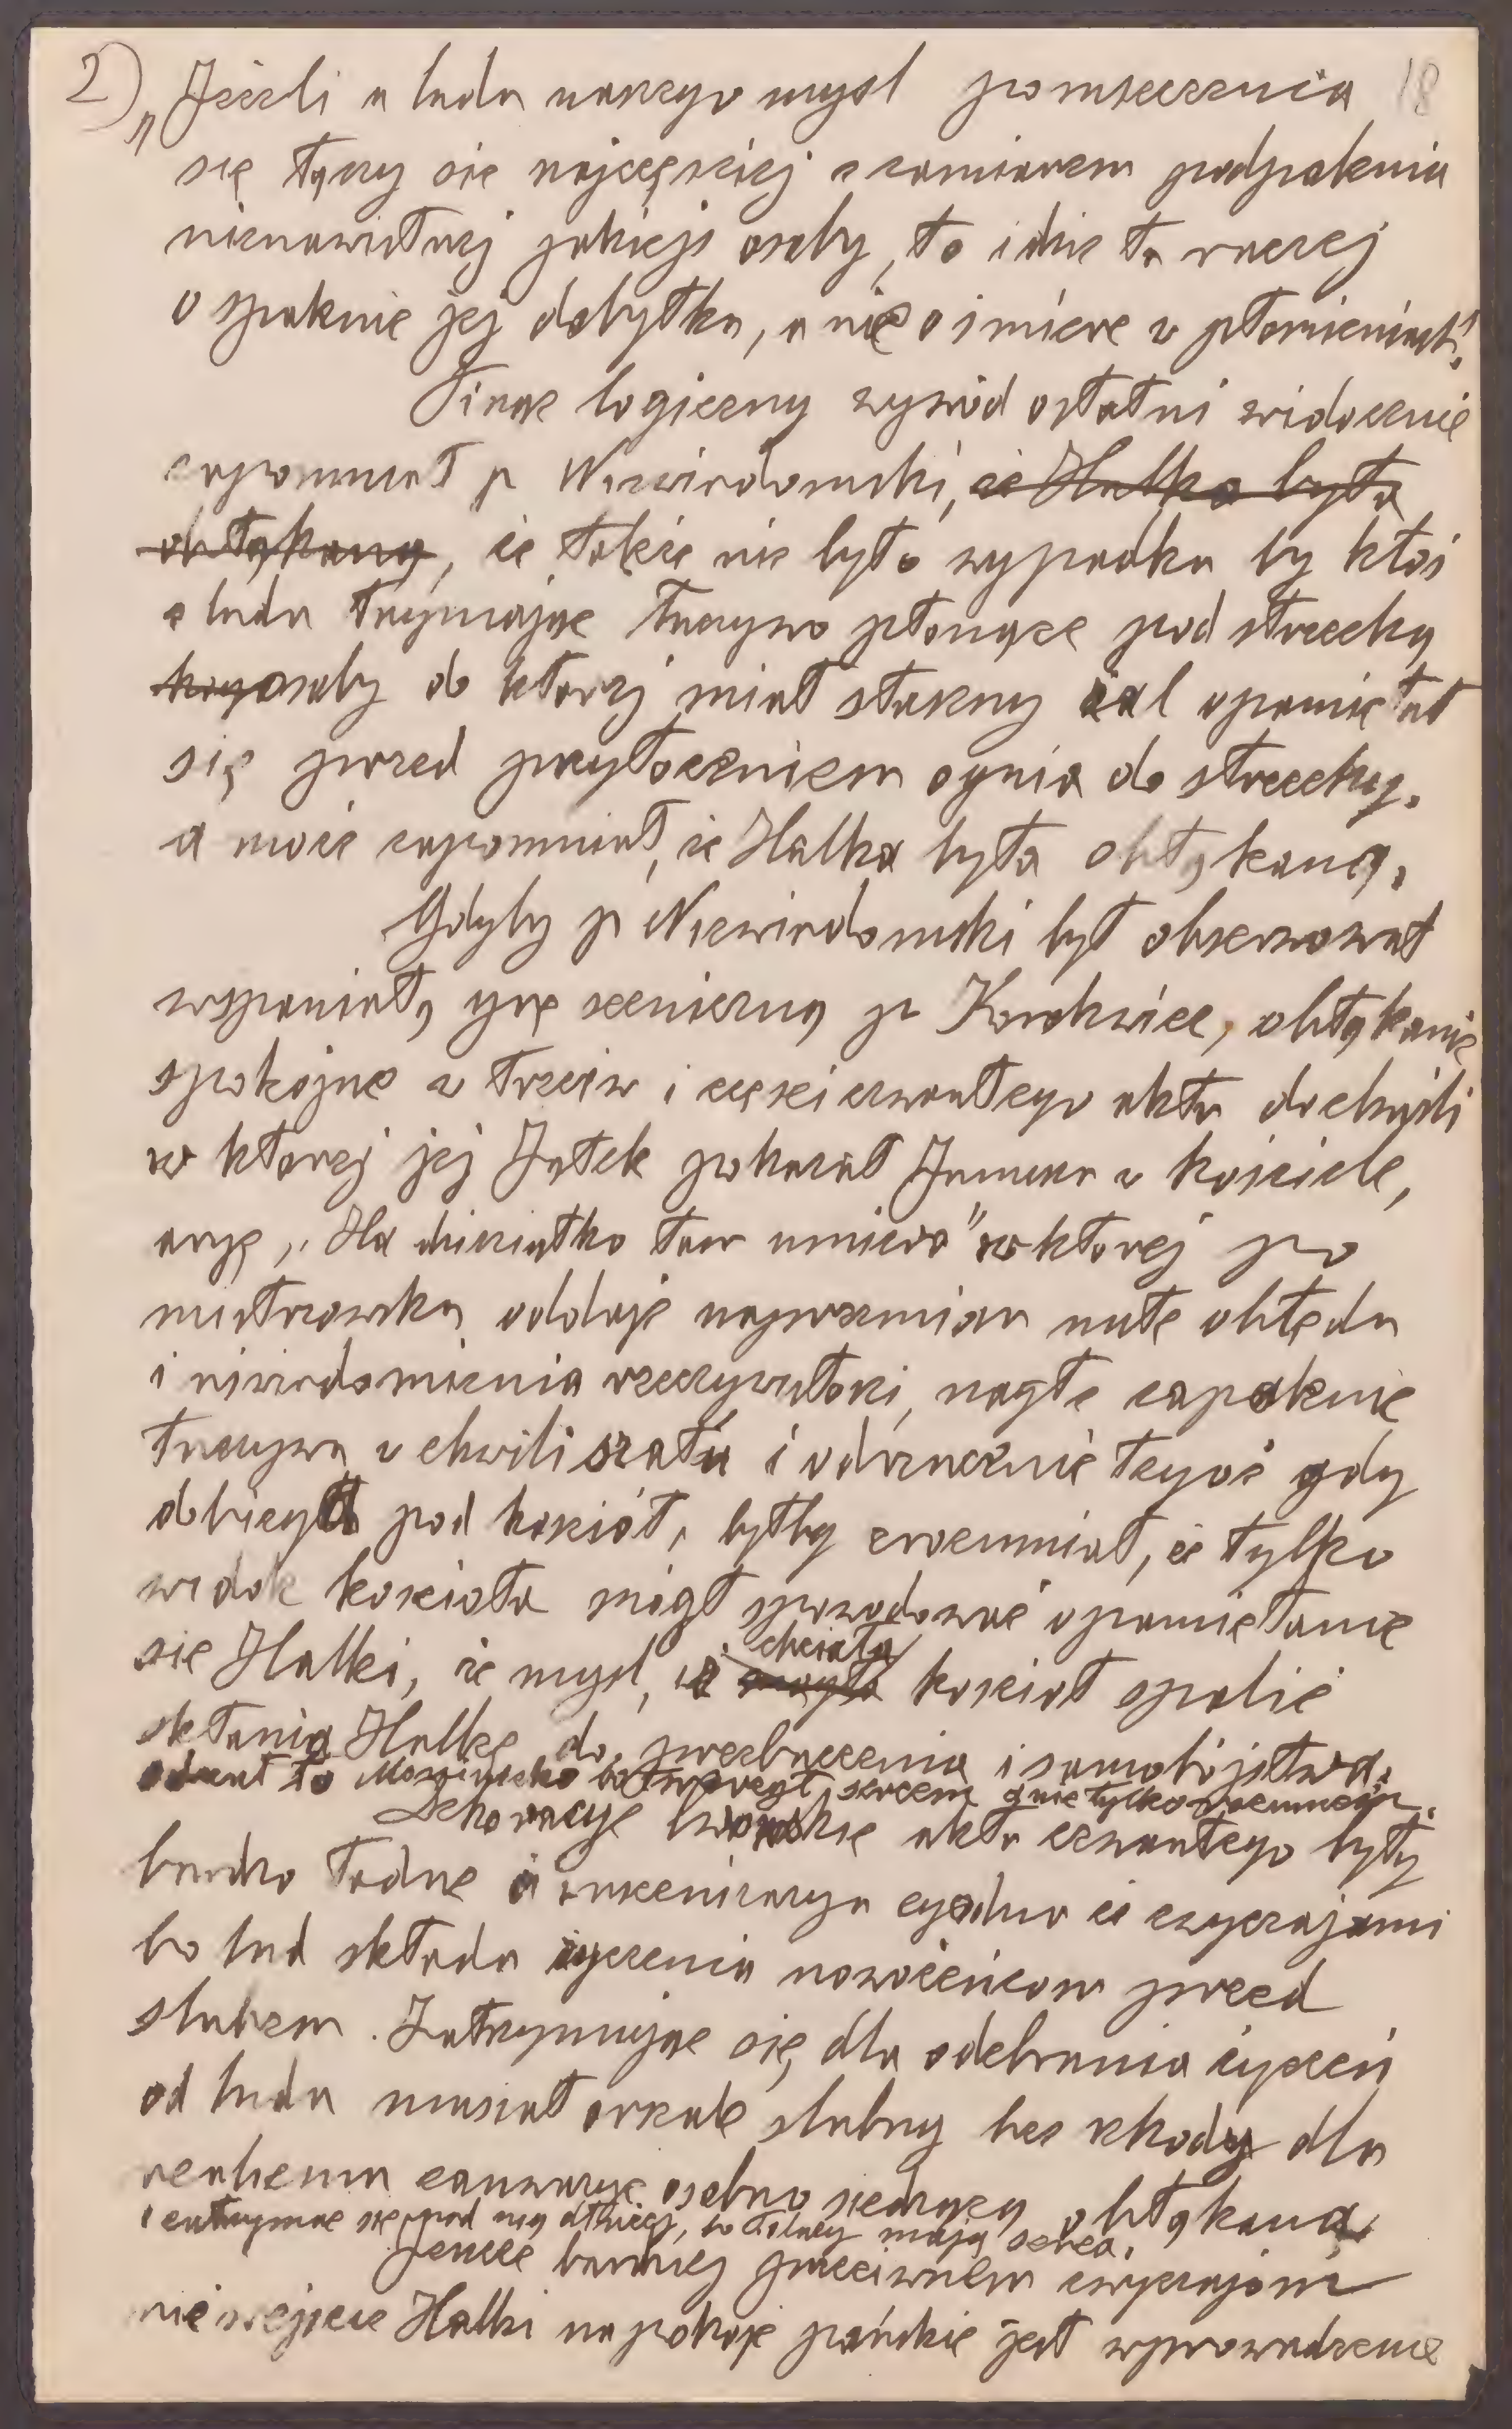 2) 18
„Jeżeli u ludu naszego myśl pomszczenia
się łączy się najczęściej z zamiarem podpalenia
nienawistnej jakiejś osoby, to idzie tu raczej
o spalenie jej dobytku, a nie o śmierć w płomieniach".
Pisząc logiczny wywód ostatni widocznie
zapomniał p Niewiadomski, że Halka była
obłąkaną, że także nie było wypadku by ktoś
z ludu trzymając łuczywo płonące pod strzechą
kogo osoby do której miał słuszny żal opamiętał
się przed przytoczeniem ognia do strzechy.
a może zapomniał, że Halka była obłąkaną.
Gdyby p Niewiadomski był obserwował
wspaniałą grę sceniczną p Korolewicz, obłąkanie
spokojne w trzecim i części czwartego aktu do chwili
w której jej Jontek pokazał Janusza w kościele,
aryę „Ha dzieciątko tam umiera" w której po
mistrzowsku oddaje naprzemian nutę obłędu
i uwiadomienia rzeczywistości, nagłe zapalenie
łuczywa w chwili szału i odrzucenie tegoż gdy
dobiegła pod kościół, byłby zrozumiał, że tylko
widok kościoła mógł spowodować opamiętanie
się Halki, że myśl, iż mogła chciała kościół spalić
skłania Halkę do przebaczenia i samobójstwa.
odczuł to Moniuszko bo tworzył sercem a nie tylko rozumem.
Dekoracye lwowskie aktu czwartego były
bardzo ładne i inscenizacya zgodna ze zwyczajami
bo lud składa życzenia nowożeńcom przed
ślubem. Zatrzymując się dla odebrania życzeń
od ludu musiał orszak ślubny bez szkody dla
realizmu zauważyć osobno siedzącą obłąkaną
i zatrzymać się nad nią dłużej, bo Polacy mają serca.
Jeszcze bardziej przeciwnem zwyczajom
niż wejście Halki na pokoje pańskie jest wprowadzenie